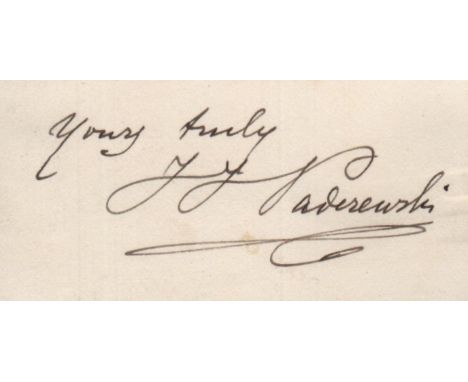 Yours truly
I J Paderewski